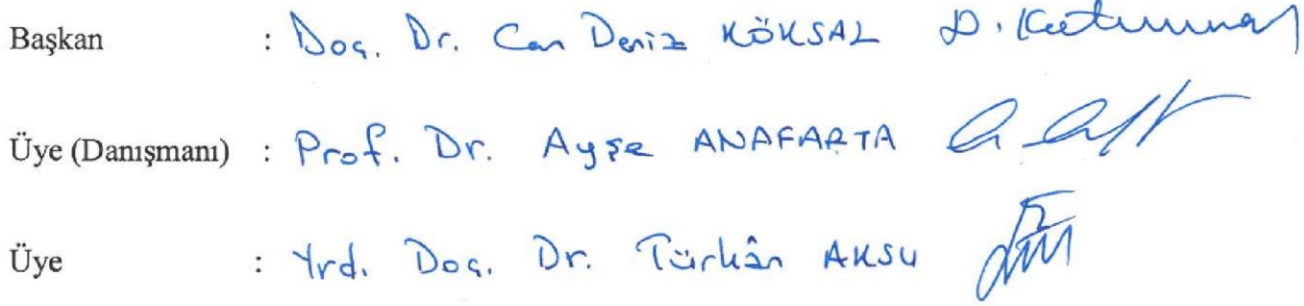 Başkan : Doç. Dr. Can Deniz KÖKSAL
Üye (Danışmanı) : Prof. Dr. Ayşe ANAFARTA
Üye : Yrd. Doç. Dr. Türkân AKSU